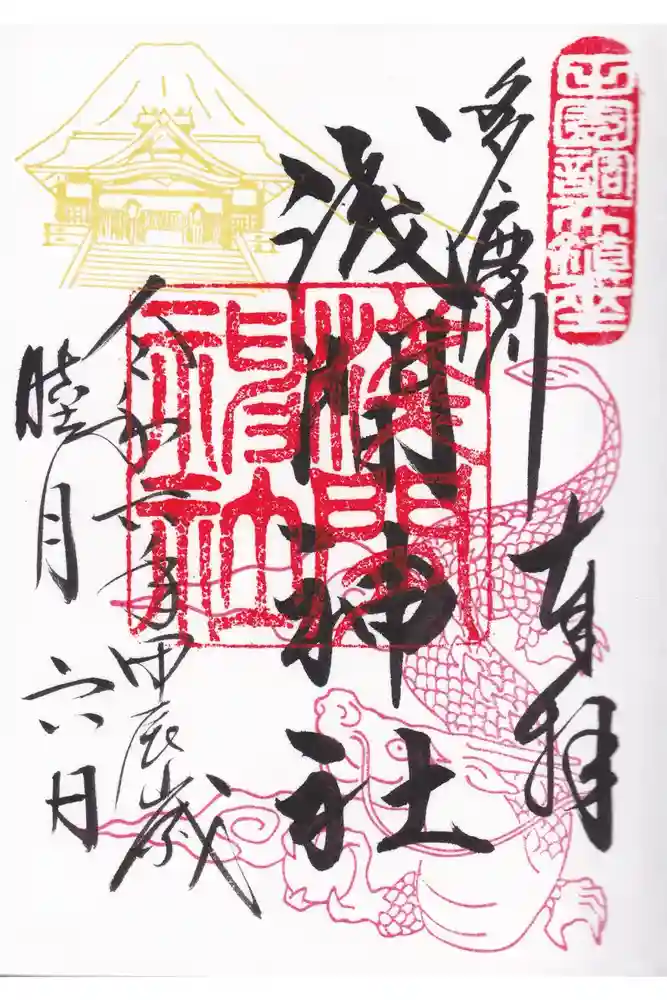 田園調布鎮座
多摩川
奉拝
浅間神社
淺間神社
令和六年甲辰歳
睦月六日